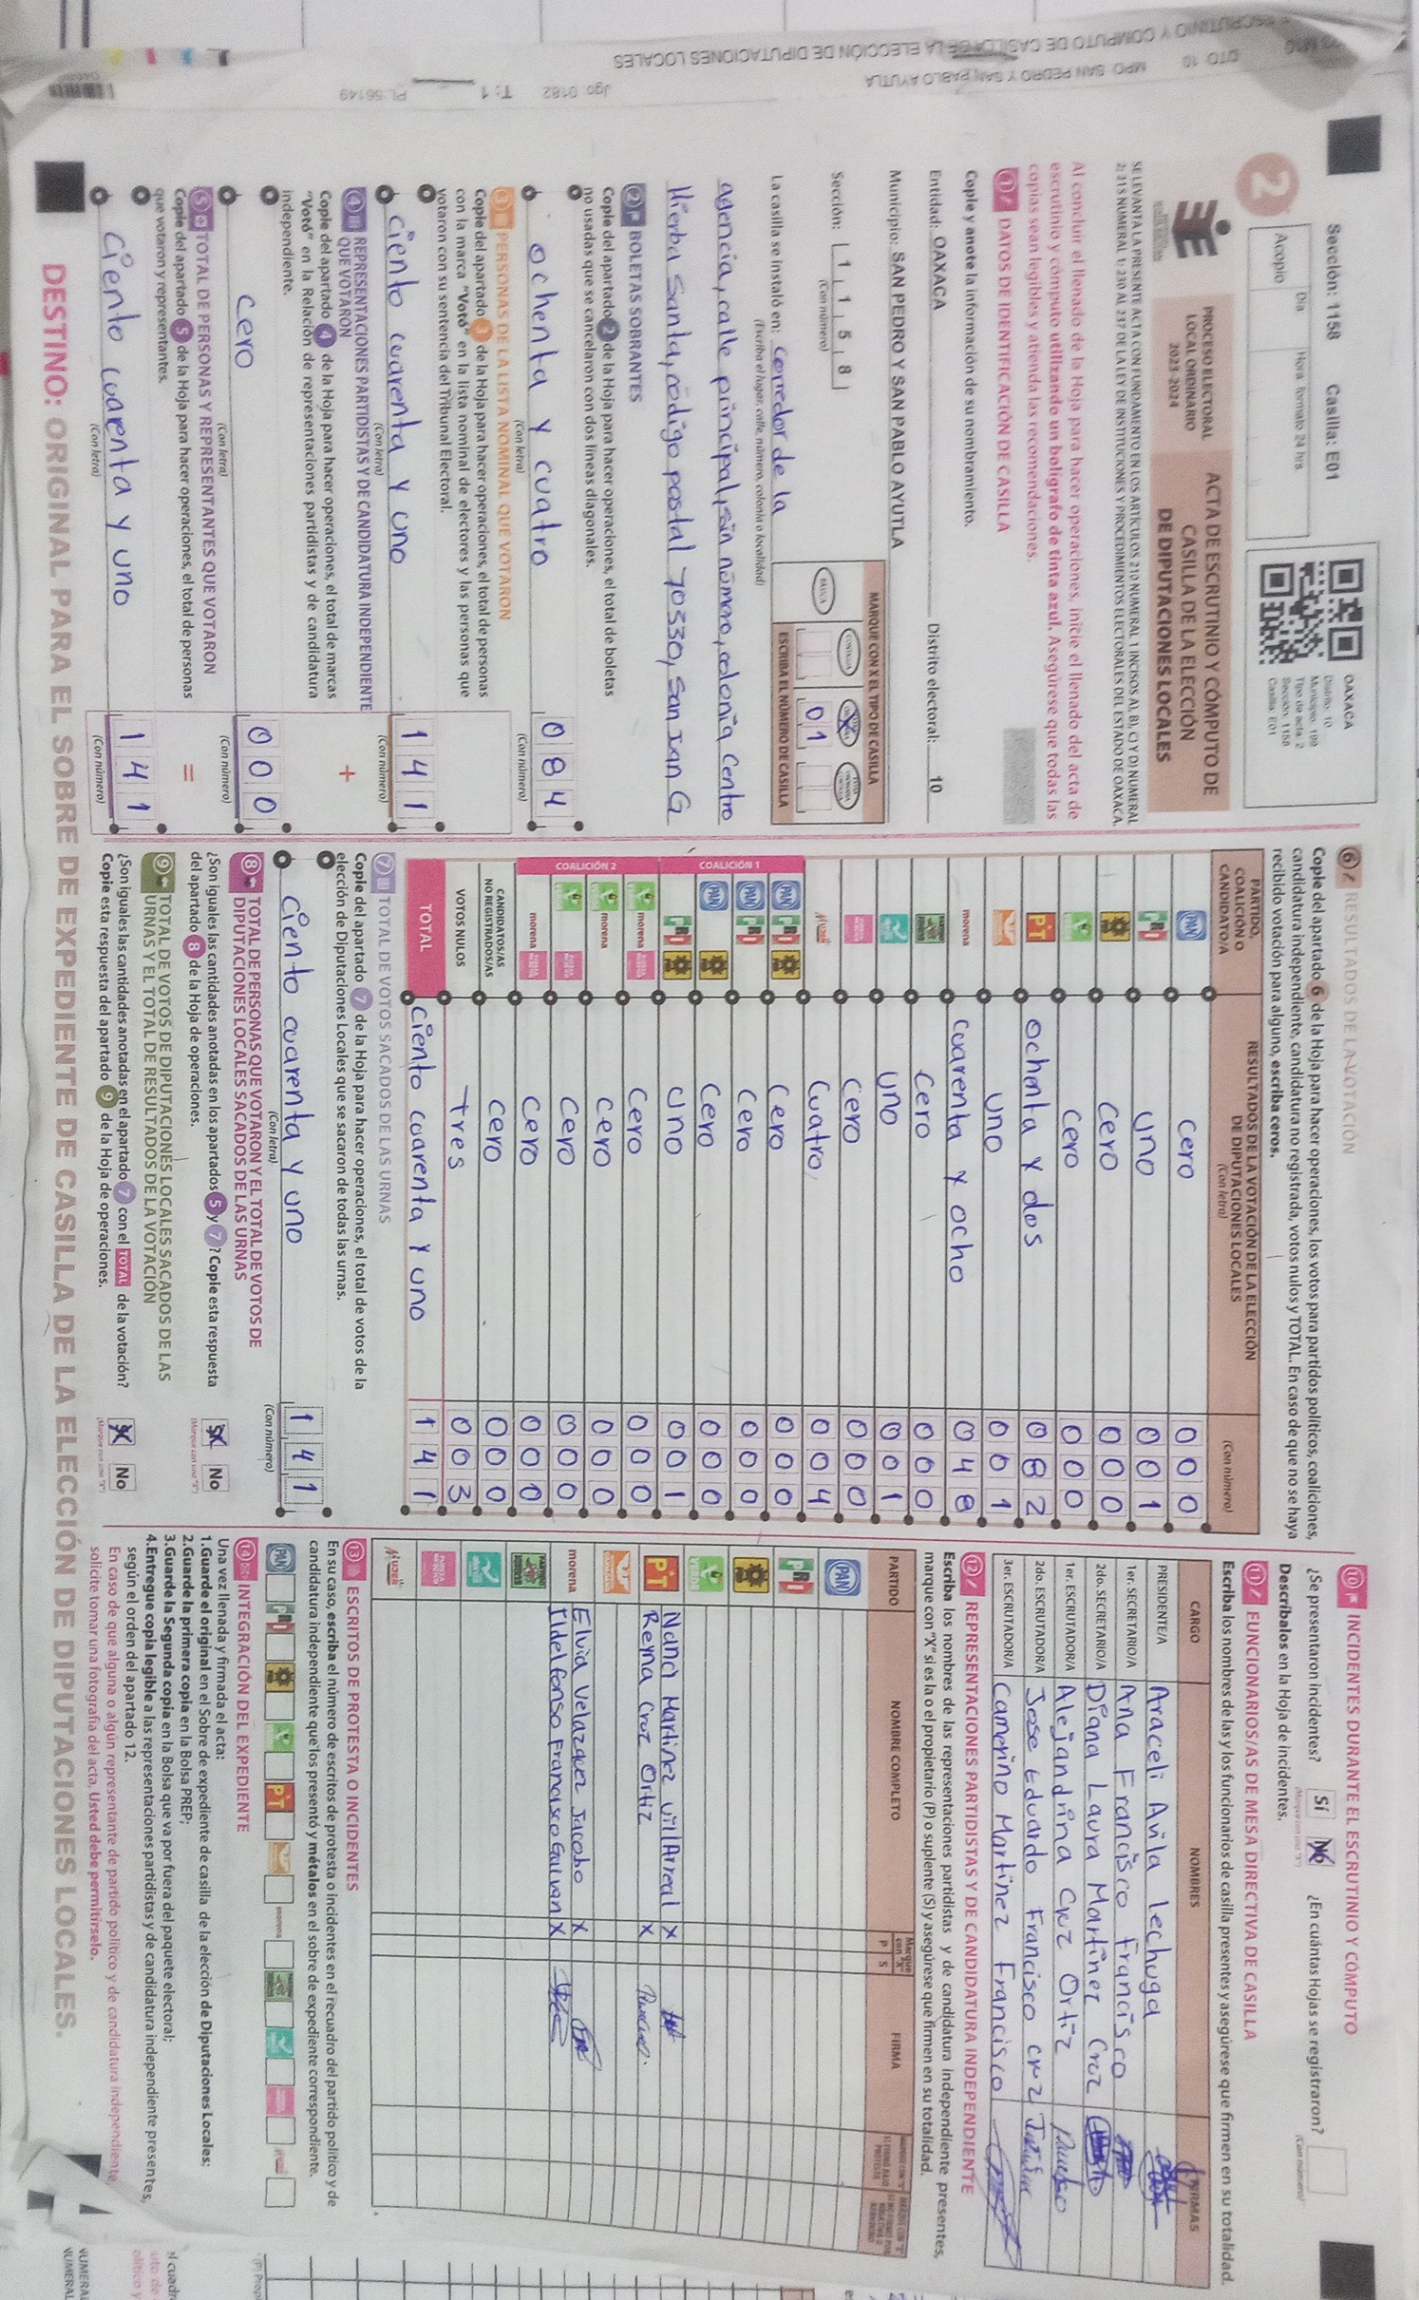 Sección: 1158 Casilla: E01
Día Hora formato 24 hrs
Acopio
2
OAXACA
Distrito: 10
Municipio: 199
Tipo de acta: 2
Sección: 1158
Casilla: E01
PROCESO ELECTORAL
LOCAL ORDINARIO
2023-2024
ACTA DE ESCRUTINIO Y CÓMPUTO DE
CASILLA DE LA ELECCIÓN
DE DIPUTACIONES LOCALES
SE LEVANTA LA PRESENTE ACTA CON FUNDAMENTO EN LOS ARTÍCULOS 210 NUMERAL 1 INCISOS A), B), C) Y D) NUMERAL
2; 215 NUMERAL 1; 230 AL 237 DE LA LEY DE INSTITUCIONES Y PROCEDIMIENTOS ELECTORALES DEL ESTADO DE OAXACA.
Al concluir el llenado de la Hoja para hacer operaciones, inicie el llenado del acta de
escrutinio y cómputo utilizando un bolígrafo de tinta azul. Asegúrese que todas las
copias sean legibles y atienda las recomendaciones.
1 DATOS DE IDENTIFICACIÓN DE CASILLA
Copie y anote la información de su nombramiento.
Entidad: OAXACA Distrito electoral: 10
Municipio: SAN PEDRO Y SAN PABLO AYUTLA
Sección: 1 1 5 8
(Con número)
MARQUE CON X EL TIPO DE CASILLA
BÁSICA CONTIGUA
0 1
ESCRIBA EL NÚMERO DE CASILLA
La casilla se instaló en: corredor de la
(Escriba el lugar, calle, número, colonia o localidad)
agencia, calle principal, sin número, colonia Centro
Hierba Santa, codigo postal 70530, San Juan G
2 BOLETAS SOBRANTES
Copie del apartado 2 de la Hoja para hacer operaciones, el total de boletas
no usadas que se cancelaron con dos líneas diagonales.
ochenta y cuatro 0 8 4
(Con letra) (Con número)
3 PERSONAS DE LA LISTA NOMINAL QUE VOTARON
Copie del apartado 3 de la Hoja para hacer operaciones, el total de personas
con la marca "Votó" en la lista nominal de electores y las personas que
votaron con su sentencia del Tribunal Electoral.
Ciento cuarenta y uno 1 4 1
(Con letra) (Con número)
4 REPRESENTACIONES PARTIDISTAS Y DE CANDIDATURA INDEPENDIENTE
QUE VOTARON
Copie del apartado 4 de la Hoja para hacer operaciones, el total de marcas
"Votó" en la Relación de representaciones partidistas y de candidatura
independiente.
+
Cero 0 0 0
(Con letra) (Con número)
5 TOTAL DE PERSONAS Y REPRESENTANTES QUE VOTARON
Copie del apartado 5 de la Hoja para hacer operaciones, el total de personas
que votaron y representantes.
=
Ciento cuarenta y uno 1 4 1
(Con letra) (Con número)
6 RESULTADOS DE LA VOTACIÓN
Copie del apartado 6 de la Hoja para hacer operaciones, los votos para partidos políticos, coaliciones,
candidatura independiente, candidatura no registrada, votos nulos y TOTAL. En caso de que no se haya
recibido votación para alguno, escriba ceros.
PARTIDO, COALICIÓN O CANDIDATO/A
RESULTADOS DE LA VOTACIÓN DE LA ELECCIÓN
DE DIPUTACIONES LOCALES
(Con letra) (Con número)
PAN Cero 0 0 0
PRI Uno 0 0 1
PRD Cero 0 0 0
VERDE Cero 0 0 0
PT Ochenta y dos 0 8 2
uno 0 0 1
morena Cuarenta y ocho 0 4 8
Cero 0 0 0
uno 0 0 1
Cero 0 0 0
MUJER Cuatro 0 0 4
COALICIÓN 1
PAN PRI PRD Cero 0 0 0
PAN PRI Cero 0 0 0
PAN PRD Cero 0 0 0
PRI PRD uno 0 0 1
COALICIÓN 2
VERDE morena Cero 0 0 0
VERDE morena Cero 0 0 0
VERDE Cero 0 0 0
morena Cero 0 0 0
CANDIDATOS/AS
NO REGISTRADOS/AS Cero 0 0 0
VOTOS NULOS Tres 0 0 3
TOTAL Ciento cuarenta y uno 1 4 1
7 TOTAL DE VOTOS SACADOS DE LAS URNAS
Copie del apartado 7 de la Hoja para hacer operaciones, el total de votos de la
elección de Diputaciones Locales que se sacaron de todas las urnas.
Ciento cuarenta y uno 1 4 1
(Con letra) (Con número)
8 TOTAL DE PERSONAS QUE VOTARON Y EL TOTAL DE VOTOS DE
DIPUTACIONES LOCALES SACADOS DE LAS URNAS
¿Son iguales las cantidades anotadas en los apartados 5 y 7? Copie esta respuesta
del apartado 8 de la Hoja de operaciones.
Sí No
9 TOTAL DE VOTOS DE DIPUTACIONES LOCALES SACADOS DE LAS
URNAS Y EL TOTAL DE RESULTADOS DE LA VOTACIÓN
¿Son iguales las cantidades anotadas en el apartado 7 con el TOTAL de la votación?
Copie esta respuesta del apartado 9 de la Hoja de operaciones.
Sí No
10 INCIDENTES DURANTE EL ESCRUTINIO Y CÓMPUTO
¿Se presentaron incidentes? Sí No ¿En cuántas Hojas se registraron?
(Con número)
Descríbalos en la Hoja de incidentes.
11 FUNCIONARIOS/AS DE MESA DIRECTIVA DE CASILLA
Escriba los nombres de las y los funcionarios de casilla presentes y asegúrese que firmen en su totalidad.
CARGO NOMBRES FIRMAS
PRESIDENTE/A Araceli Avila lechuga
1er. SECRETARIO/A Ana Francisco francisco
2do. SECRETARIO/A Diana Laura Martinez Cruz
1er. ESCRUTADOR/A Alejandrina Cruz Ortiz
2do. ESCRUTADOR/A Jose Eduardo Francisco cruz
3er. ESCRUTADOR/A Camerino Martinez Francisco
12 REPRESENTACIONES PARTIDISTAS Y DE CANDIDATURA INDEPENDIENTE
Escriba los nombres de las representaciones partidistas y de candidatura independiente presentes,
marque con "X" si es la o el propietario (P) o suplente (S) y asegúrese que firmen en su totalidad.
PARTIDO NOMBRE COMPLETO Marque con "X" P S FIRMA
PAN
PRI
PRD
VERDE
PT Nanci Martinez VillArreal X
Reyna Cruz Ortiz X
morena Elvia Velazquez Jacobo X
Ildelfonso Francisco Galvan X
MUJER
13 ESCRITOS DE PROTESTA O INCIDENTES
En su caso, escriba el número de escritos de protesta o incidentes en el recuadro del partido político y de
candidatura independiente que los presentó y métalos en el sobre de expediente correspondiente.
PAN PRI PRD VERDE PT morena
14 INTEGRACIÓN DEL EXPEDIENTE
Una vez llenada y firmada el acta:
1.Guarde el original en el Sobre de expediente de casilla de la elección de Diputaciones Locales;
2.Guarde la primera copia en la Bolsa PREP;
3.Guarde la Segunda copia en la Bolsa que va por fuera del paquete electoral;
4.Entregue copia legible a las representaciones partidistas y de candidatura independiente presentes,
según el orden del apartado 12.
En caso de que alguna o algún representante de partido político y de candidatura independiente
solicite tomar una fotografía del acta, Usted debe permitírselo.
DESTINO: ORIGINAL PARA EL SOBRE DE EXPEDIENTE DE CASILLA DE LA ELECCIÓN DE DIPUTACIONES LOCALES.
ESCRUTINIO Y COMPUTO DE CASILLA DE LA ELECCIÓN DE DIPUTACIONES LOCALES
DTO. 10 MPO. SAN PEDRO Y SAN PABLO AYUTLA
Jgo: 0182 T: 1 PL: 56149